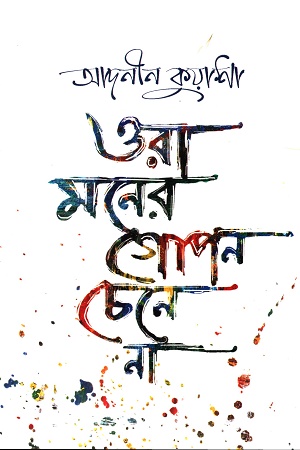 আদনীন কুয়াশা
ওরা
মনের
গোপন
চেনে
না